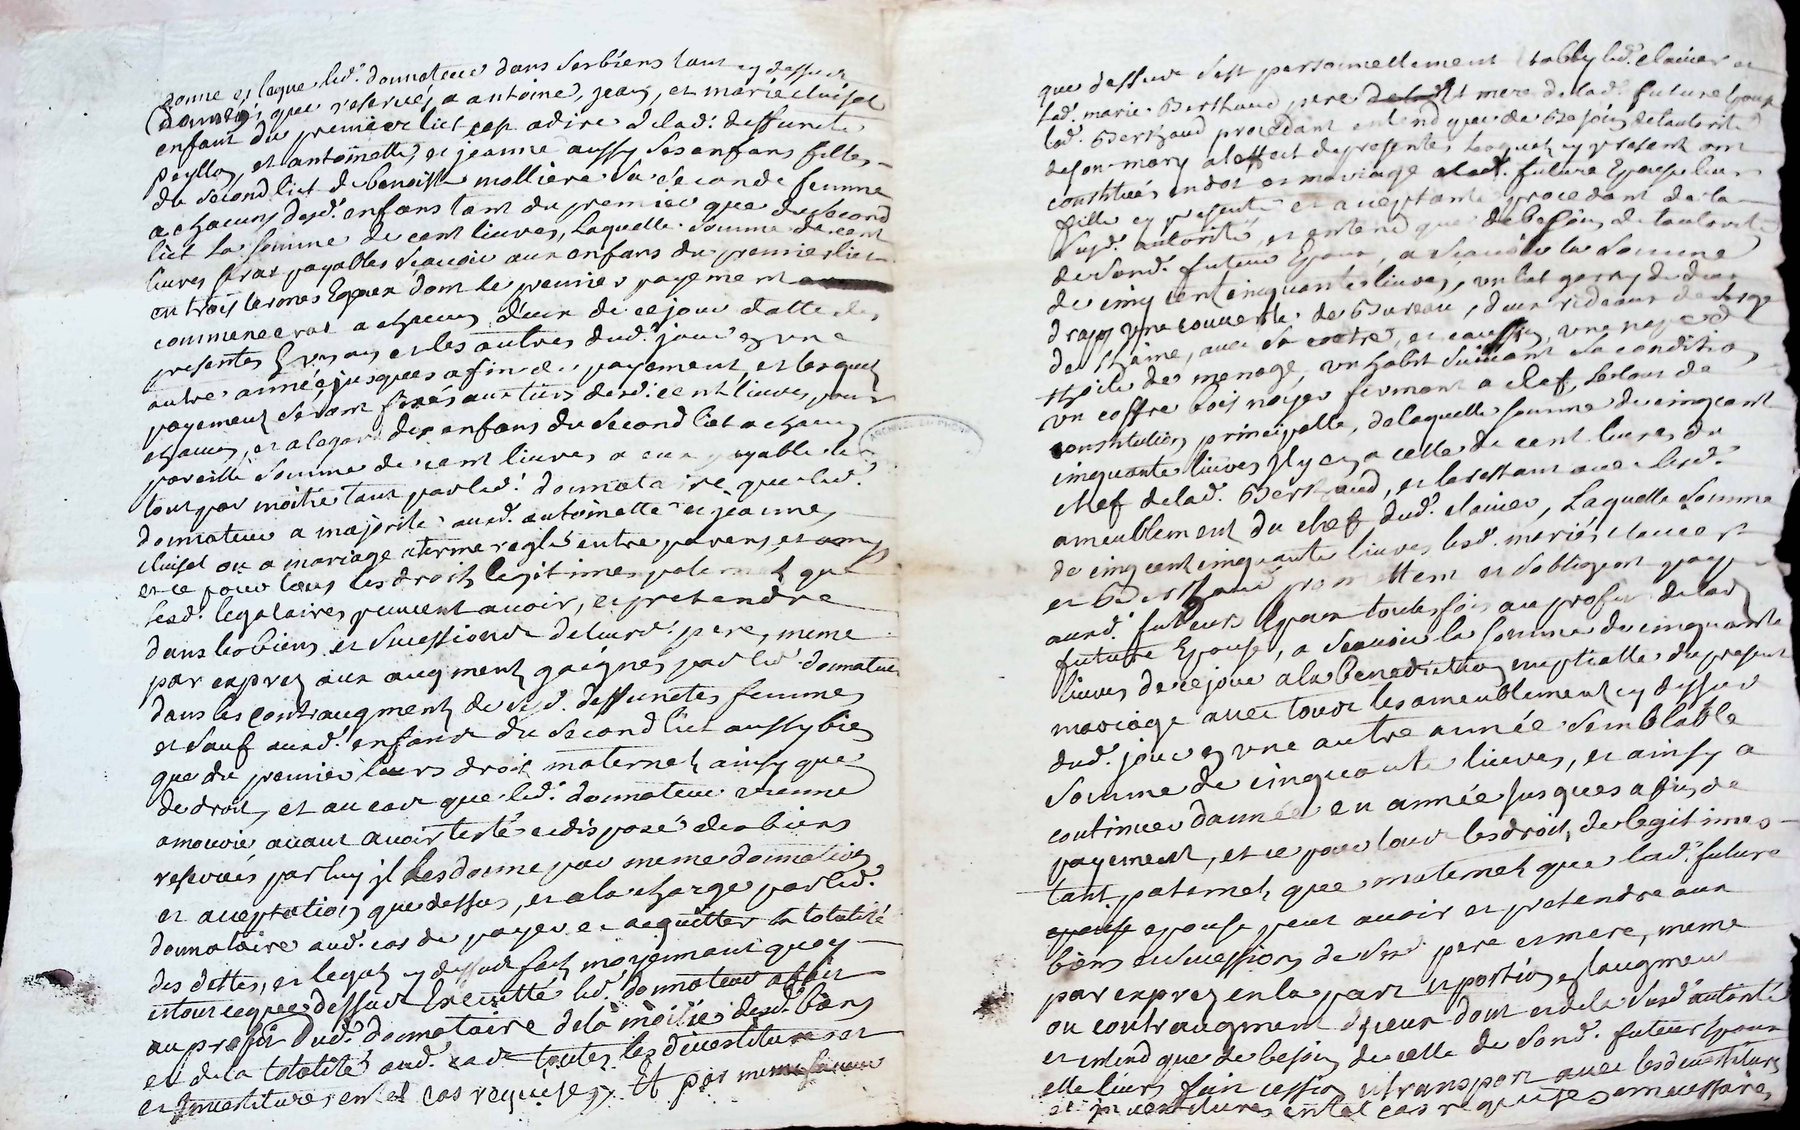 donne et legue led. donnateur dans ses biens tant cy dessus
donnés que reservés, a antoine, jean, et marie cluisel
enfant du premier lict cest a dire de lad. deffuncte
peyllon, et antoinette, et jeanne aussy ses enfans filles
du second lict de benoiste mollière sa seconde femme
a chacuns desd. enfans tant du premier que du second
lict la somme de cent livres, laquelle somme de cent
livres sera payables scavoir aux enfans du premier lict
en trois termes egaux dont le premier payement
commencera a chacun d'eux de ce jour datte des
presentes en un an et les autres dud. jour en une
autre année, jusques a fin de payement, et lesquels
payements seront fixés aux tiers desd. cent livres pour
chacun, et a legard des enfans du second lict a chacun
pareille somme de cent livres a eux payable le
tout par moitié tant par led. donnataire que led.
donnateur a majorité auxd. antoinette et jeanne
cluisel ou a mariage a terme reglé entre parens, et amis
et ce pour tous les droits legitimes paternels que
lesd. legataires peuvent avoir, et pretendre
dans les biens et sucessions de leurd. pere, meme
par exprez aux augments gaignés par led. donnateur
dans les contraugments de sesd. deffunctes femmes
et sauf auxd. enfans du second lict aussy bien
que du premier leurs droits maternels ainsy que
de droit, et au cas que led. donnateur vienne
a mourir avant avoir testé et disposé des biens
reservés par luy il les donne par meme donnation
et acceptation que dessus, et a la charge par led.
donnataire aud. cas de payer et acquitter la totalité
des dettes, et legats cy dessus faits moyennant quoy
et tout ce que dessus executté led. donnateur
au profit dud. donnataire de la moitié desd. biens
et de la totalité aud. cas toutes les devestitures et
et investitures en tel cas requises. Et par meme
que dessus s'est personnellement etably led. clavier et
lad. marie Berthaud, pere et mere de lad. future epouse
lad. Berthaud procedant entend que de besoin de l'autorité
de son mary a l'effect de presentes lesquels cy present ont
constitués en dot et mariage a lad. future epouse leur
fille cy presente et acceptante procedant de la
susd. autorité, et entend que de besoin de lautorité
de sond. futeur epoux, a scavoir la somme
de cinq cent cinquante livres, un lict garny de deux
draps, une couverte de Bureau, deux rideaux de serge
de laine, avec sa coetre, et coussin, une nappe de
thoile de menage, un habit suivant sa condition
un coffre bois noyer fermant a clef, le tout de
constitution principalle, de laquelle somme de cinq cent
cinquante livres il y en a celle de cent livres du
chef de lad. Berthaud, et le restant avec lesd.
ameublement du chef dud. clavier, laquelle somme
de cinq cent cinquante livres lesd. mariés clavier
et Berthaud promettent et s'obligent payer
auxd. futeurs epoux toutesfois au profit de lad.
future epouse, a scavoir la somme de cinquante
livres de ce jour a la benediction nuptialle du present
mariage avec tous les ameublements cy dessus
dud. jour en une autre année semblable
somme de cinquante livres, et ainsy a
continuer d'année en année jusques a fin de
payement, et ce pour tous les droits de legitimes
tant paternels que maternels que lad. future
epouse peut avoir et pretendre aux
biens et sucessions de sesd. pere et mere, meme
par exprez en la part et portion et augment
ou contraugment d'iceux dont et de la susd. autorité
et entend que de besoin de celle de sond. futeur epoux
elle leurs fait cession et transport avec les devestitures
et investitures en tel cas requises et necessaires